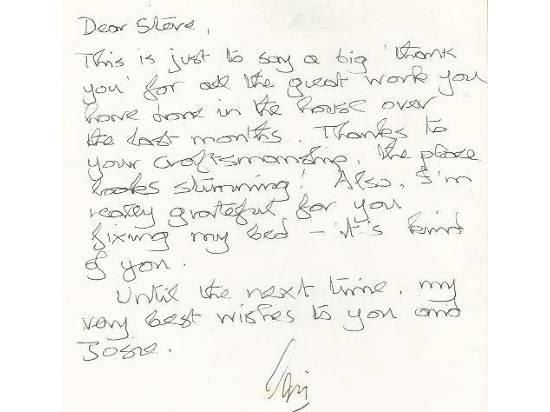 Dear Steve,
This is just to say a big 'thank
you' for all the great work you
have done in the house over
the last months. Thanks to
your craftsmanship, the place
looks stunning! Also, I'm
really grateful for you
fixing my bed – it's kind
of you.
Until the next time, my
very best wishes to you and
Josie.